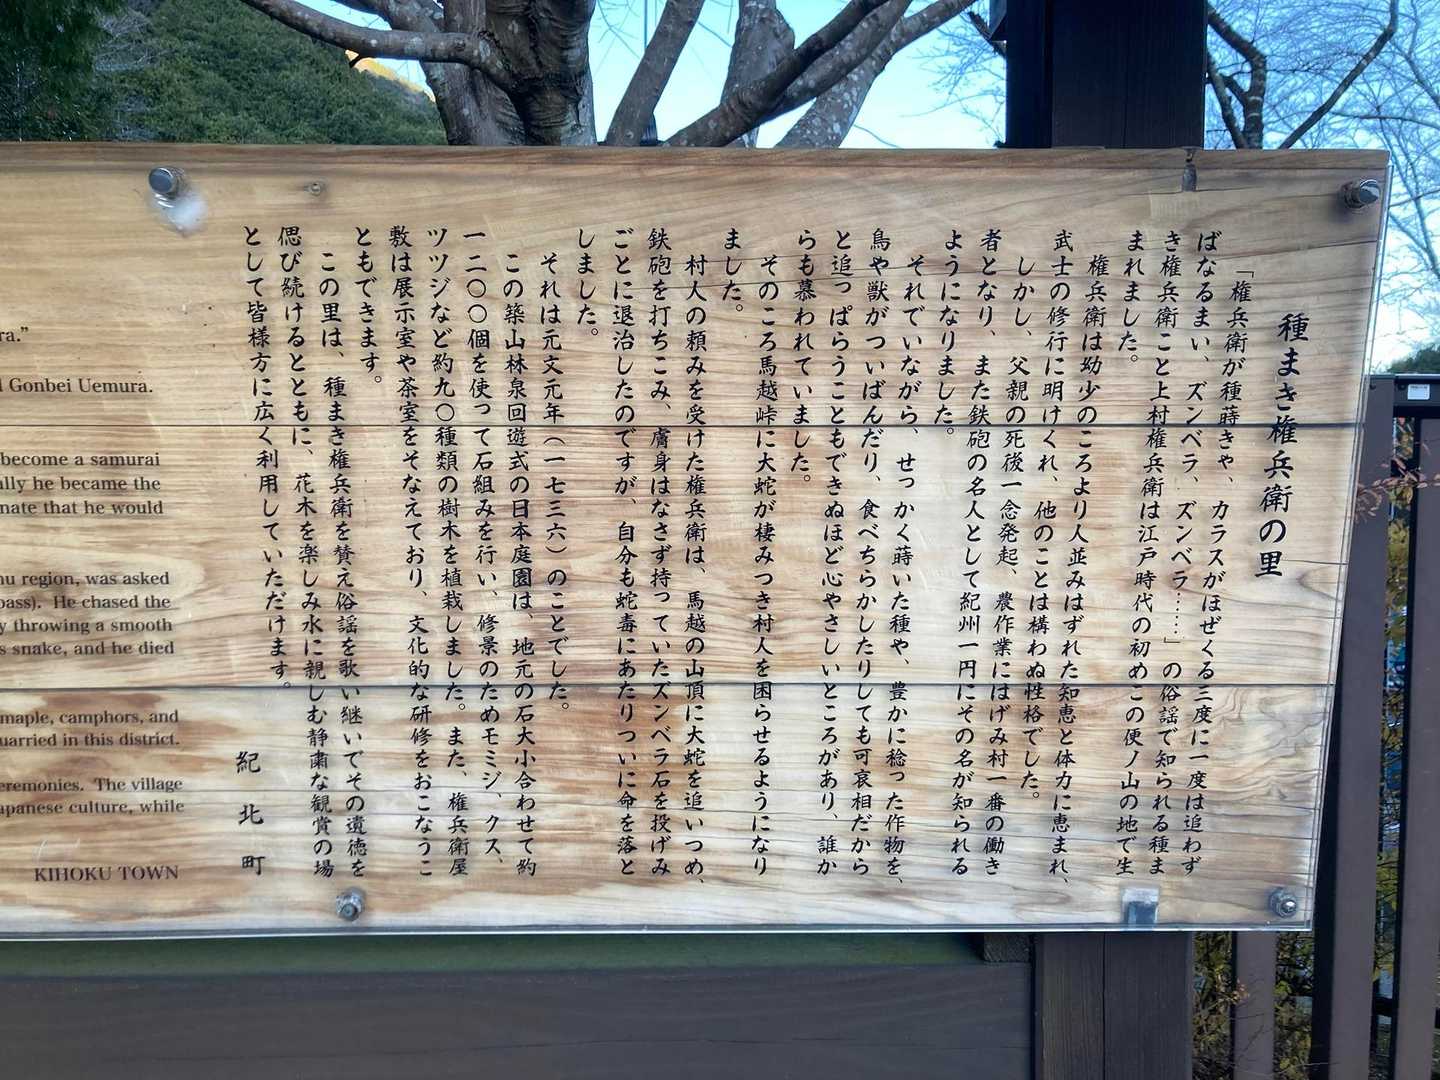 種まき権兵衛の里
「権兵衛が種蒔きや、カラスがほぜくる三度に一度は追わず
ばなるまい、ズンベラ、ズンベラ……」の俗謡で知られる種ま
き権兵衛こと上村権兵衛は江戸時代の初めこの便ノ山の地で生
まれました。
権兵衛は幼少のころより人並みはずれた知恵と体力に恵まれ、
武士の修行に明けくれ、他のことは構わぬ性格でした。
しかし、父親の死後一念発起、農作業にはげみ村一番の働き
者となり、また鉄砲の名人として紀州一円にその名が知られる
ようになりました。
それでいながら、せっかく蒔いた種や、豊かに稔った作物を、
鳥や獣がついばんだり、食べちらかしたりしても可哀相だから
と追っぱらうこともできぬほど心やさしいところがあり、誰か
らも慕われていました。
そのころ馬越峠に大蛇が棲みつき村人を困らせるようになり
ました。
村人の頼みを受けた権兵衛は、馬越の山頂に大蛇を追いつめ、
鉄砲を打ちこみ、膚身はなさず持っていたズンベラ石を投げみ
ごとに退治したのですが、自分も蛇毒にあたりついに命を落と
しました。
それは元文元年（一七三六）のことでした。
この築山林泉回遊式の日本庭園は、地元の石大小合わせて約
一二〇〇個を使って石組みを行い、修景のためモミジ、クス、
ツツジなど約九〇種類の樹木を植栽しました。また、権兵衛屋
敷は展示室や茶室をそなえており、文化的な研修をおこなうこ
ともできます。
この里は、種まき権兵衛を賛え俗謡を歌い継いでその遺徳を
偲び続けるとともに、花木を楽しみ水に親しむ静粛な観賞の場
として皆様方に広く利用していただけます。
紀北町
ra."
d Gonbei Uemura.
become a samurai
ally he became the
nate that he would
nu region, was asked
pass). He chased the
y throwing a smooth
s snake, and he died
maple, camphors, and
uarried in this district.
eremonies. The village
apanese culture, while
KIHOKU TOWN